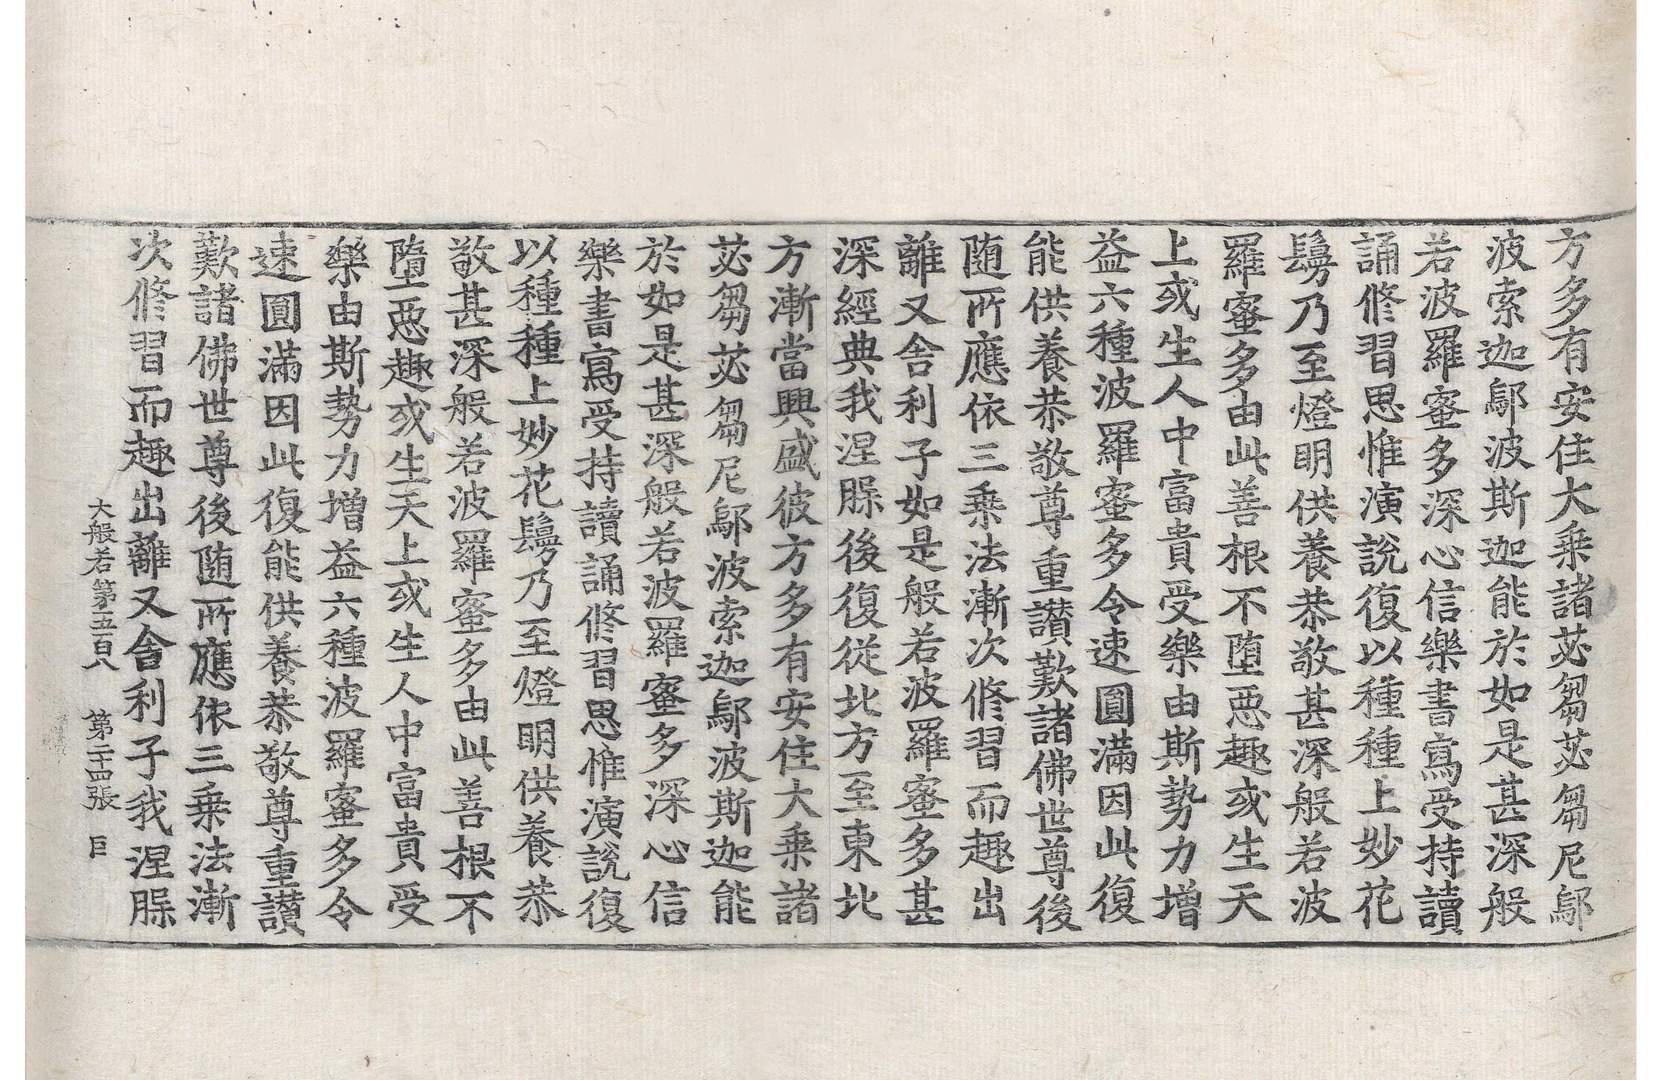 方多有安住大乗諸苾芻苾芻尼鄔
波索迦鄔波斯迦能於如是甚深般
若波羅蜜多深心信樂書寫受持讀
誦修習思惟演說復以種種上妙花
鬘乃至燈明供養恭敬甚深般若波
羅蜜多由此善根不堕惡趣或生天
上或生人中富貴受樂由斯勢力增
益六種波羅蜜多令速圓滿因此復
能供養恭敬尊重讃歎諸佛世尊後
随所應依三乗法漸次修習而趣出
離又舍利子如是般若波羅蜜多甚
深經典我涅槃後復從北方至東北
方漸當興盛彼方多有安住大乗諸
苾芻苾芻尼鄔波索迦鄔波斯迦能
於如是甚深般若波羅蜜多深心信
樂書寫受持讀誦修習思惟演說復
以種種上妙花鬘乃至燈明供養恭
敬甚深般若波羅蜜多由此善根不
堕惡趣或生天上或生人中富貴受
樂由斯勢力增益六種波羅蜜多令
速圓滿因此復能供養恭敬尊重讃
歎諸佛世尊後随所應依三乗法漸
次修習而趣出離又舍利子我涅槃
大般若第五百八 第二十四張 巨